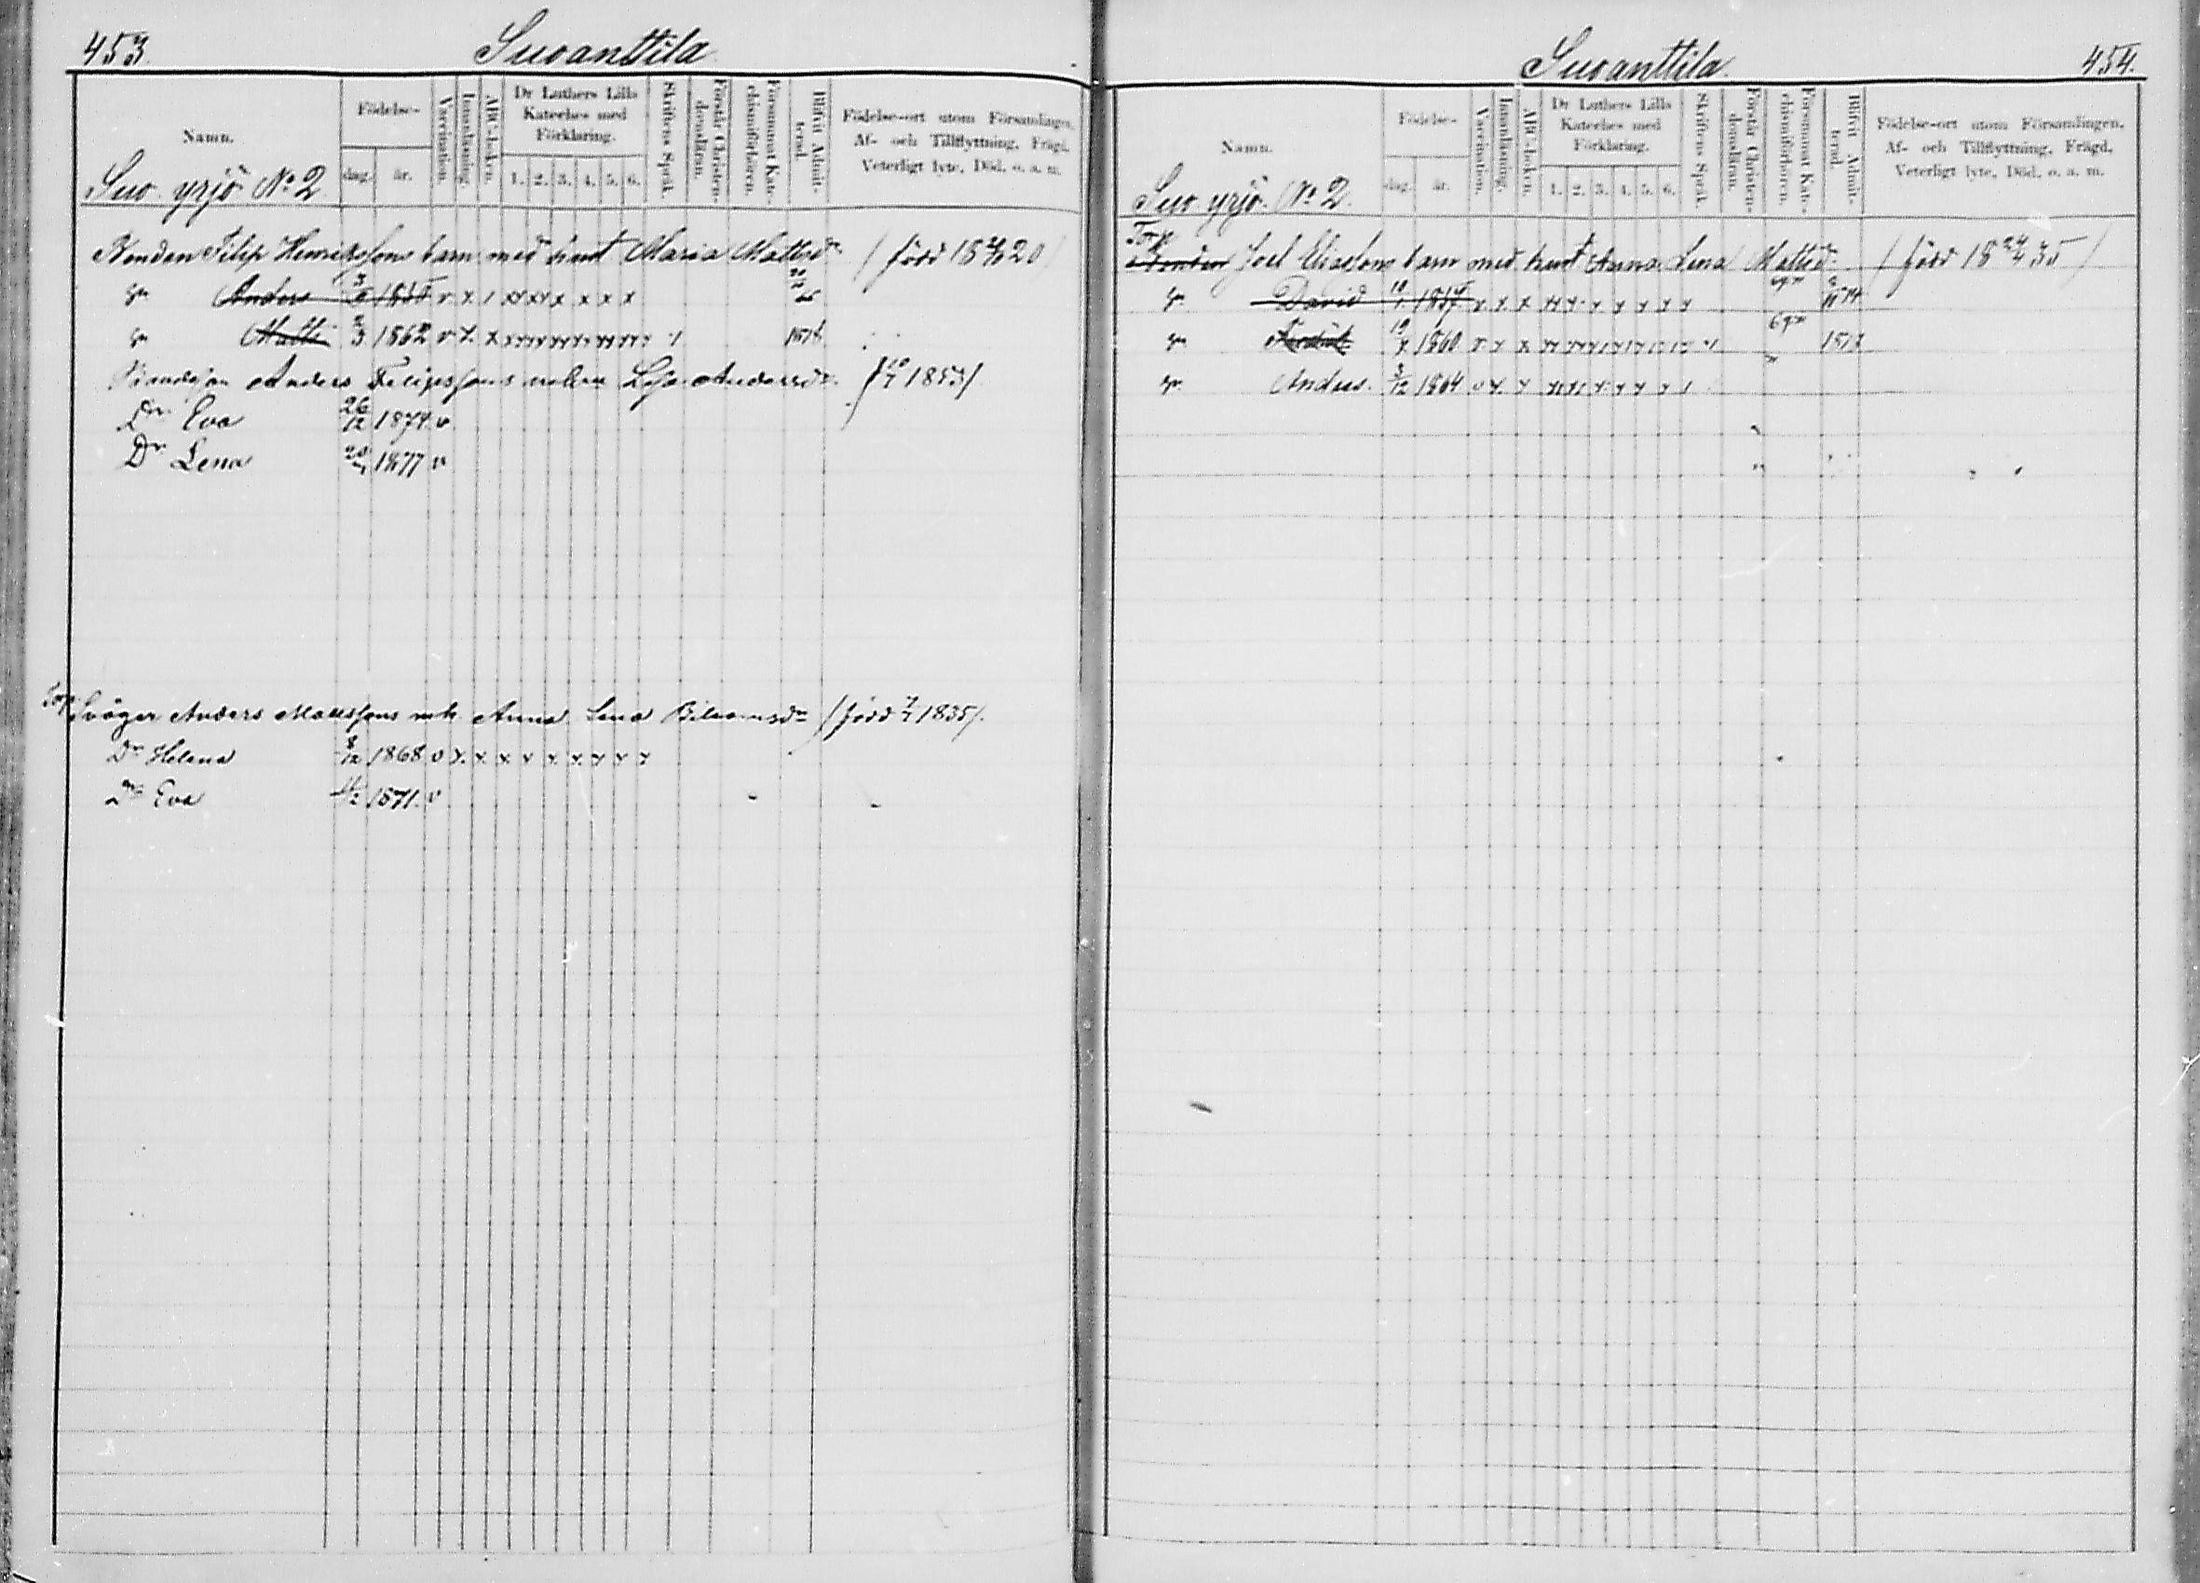 453.
Suoanttila
Namn.
Födelse-
dag.
år.
Vaccination.
Innanläsning.
ABC-boken.
Dr Luthers Lilla
Kateches med
Förklaring.
1. 2. 3. 4. 5. 6.
Skriftens Språk.
Förstår Christen-
domsläran.
Försummat Kate-
chismiförhören.
Blifvit Admit-
terad.
Födelse-ort utom Församlingen,
Af- och Tillflyttning, Frägd,
Veterligt lyte, Död, o. a. m.
Suo yrjö No 2
Bonden Filip Henrikssons barn med hust Maria Mattsdr (född 18 20)
Sn Anders
Sn Matti 2/3 1862 v x x
Bondeson Anders Filipssons Anders dr 1853/
Dr Eva 26/12 1874 v
Dr Lena 1877 v
Torp Svåger Anders Anna Lena (född 1835/.
Dr Helena 8/12 1868 v x x x x x x x x x
Dr Eva 1871. v
Suoanttila.
454.
Namn.
Födelse-
dag.
år.
Vaccination.
Innanläsning.
ABC-boken.
Dr Luthers Lilla
Kateches med
Förklaring.
1. 2. 3. 4. 5. 6.
Skriftens Språk.
Förstår Christen-
domsläran.
Försummat Kate-
chismiförhören.
Blifvit Admit-
terad.
Födelse-ort utom Församlingen,
Af- och Tillflyttning, Frägd,
Veterligt lyte, Död, o. a. m.
Suo yrjö. No 2.
Torp
Bonden Joel Eliassons barn med hust Anna Lena Mattsdr (född 18 24/4 35)
Sn David 1857 v x x
Sn 1860 v x x
Sn Anders. 3/12 1864 v x x